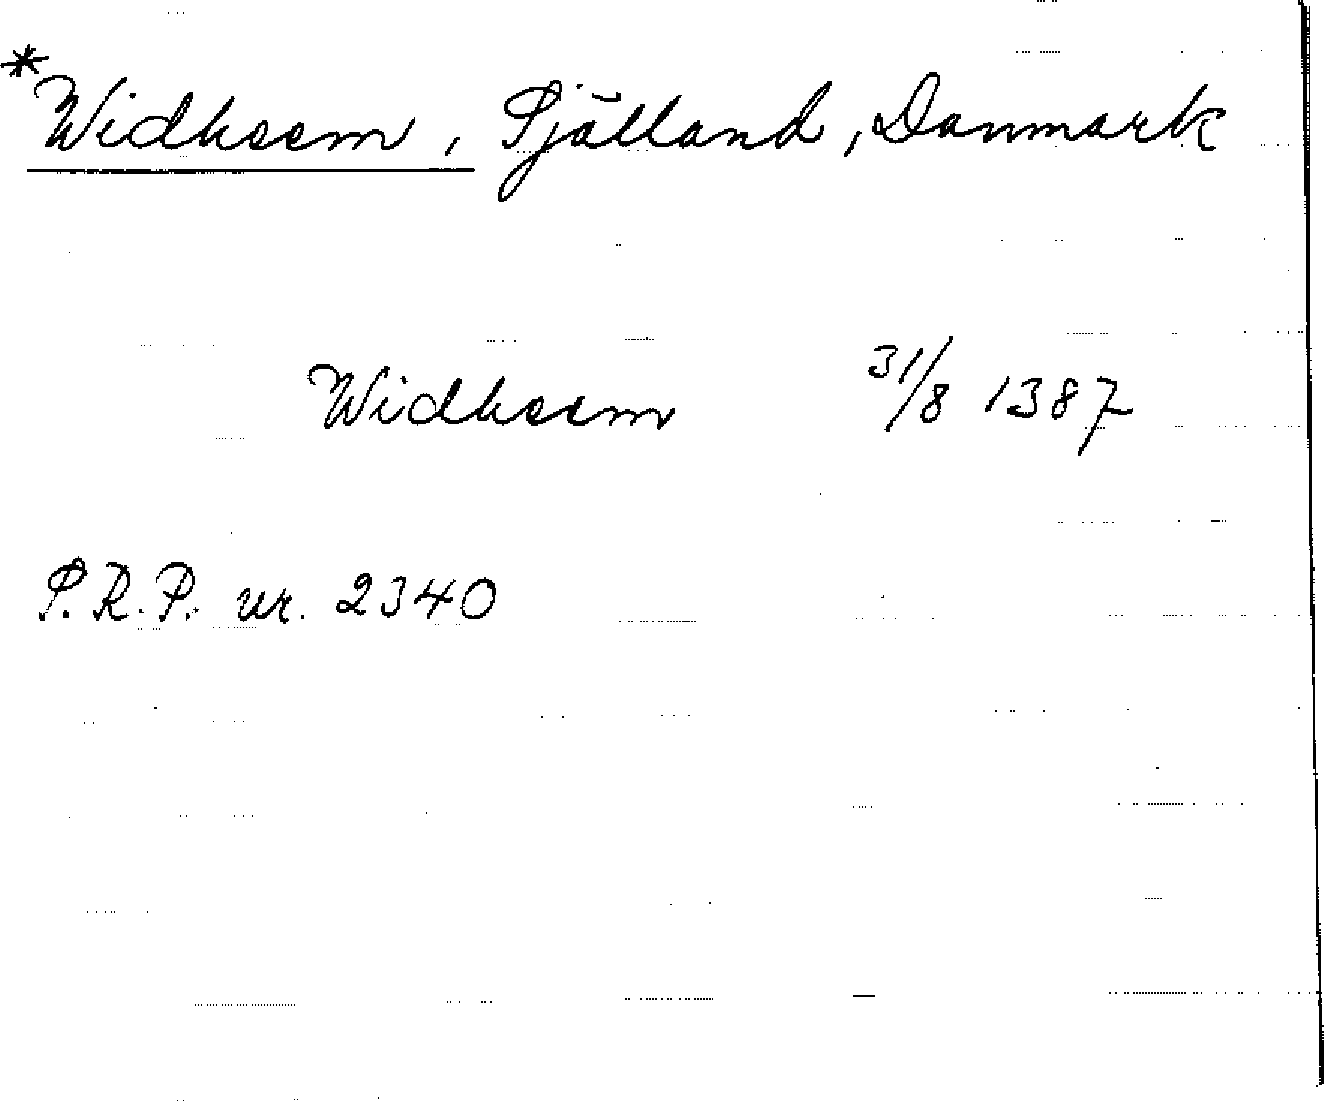 *Widheem, Själland, Danmark
Widheem 31/8 1387
S.R.P. nr. 2340